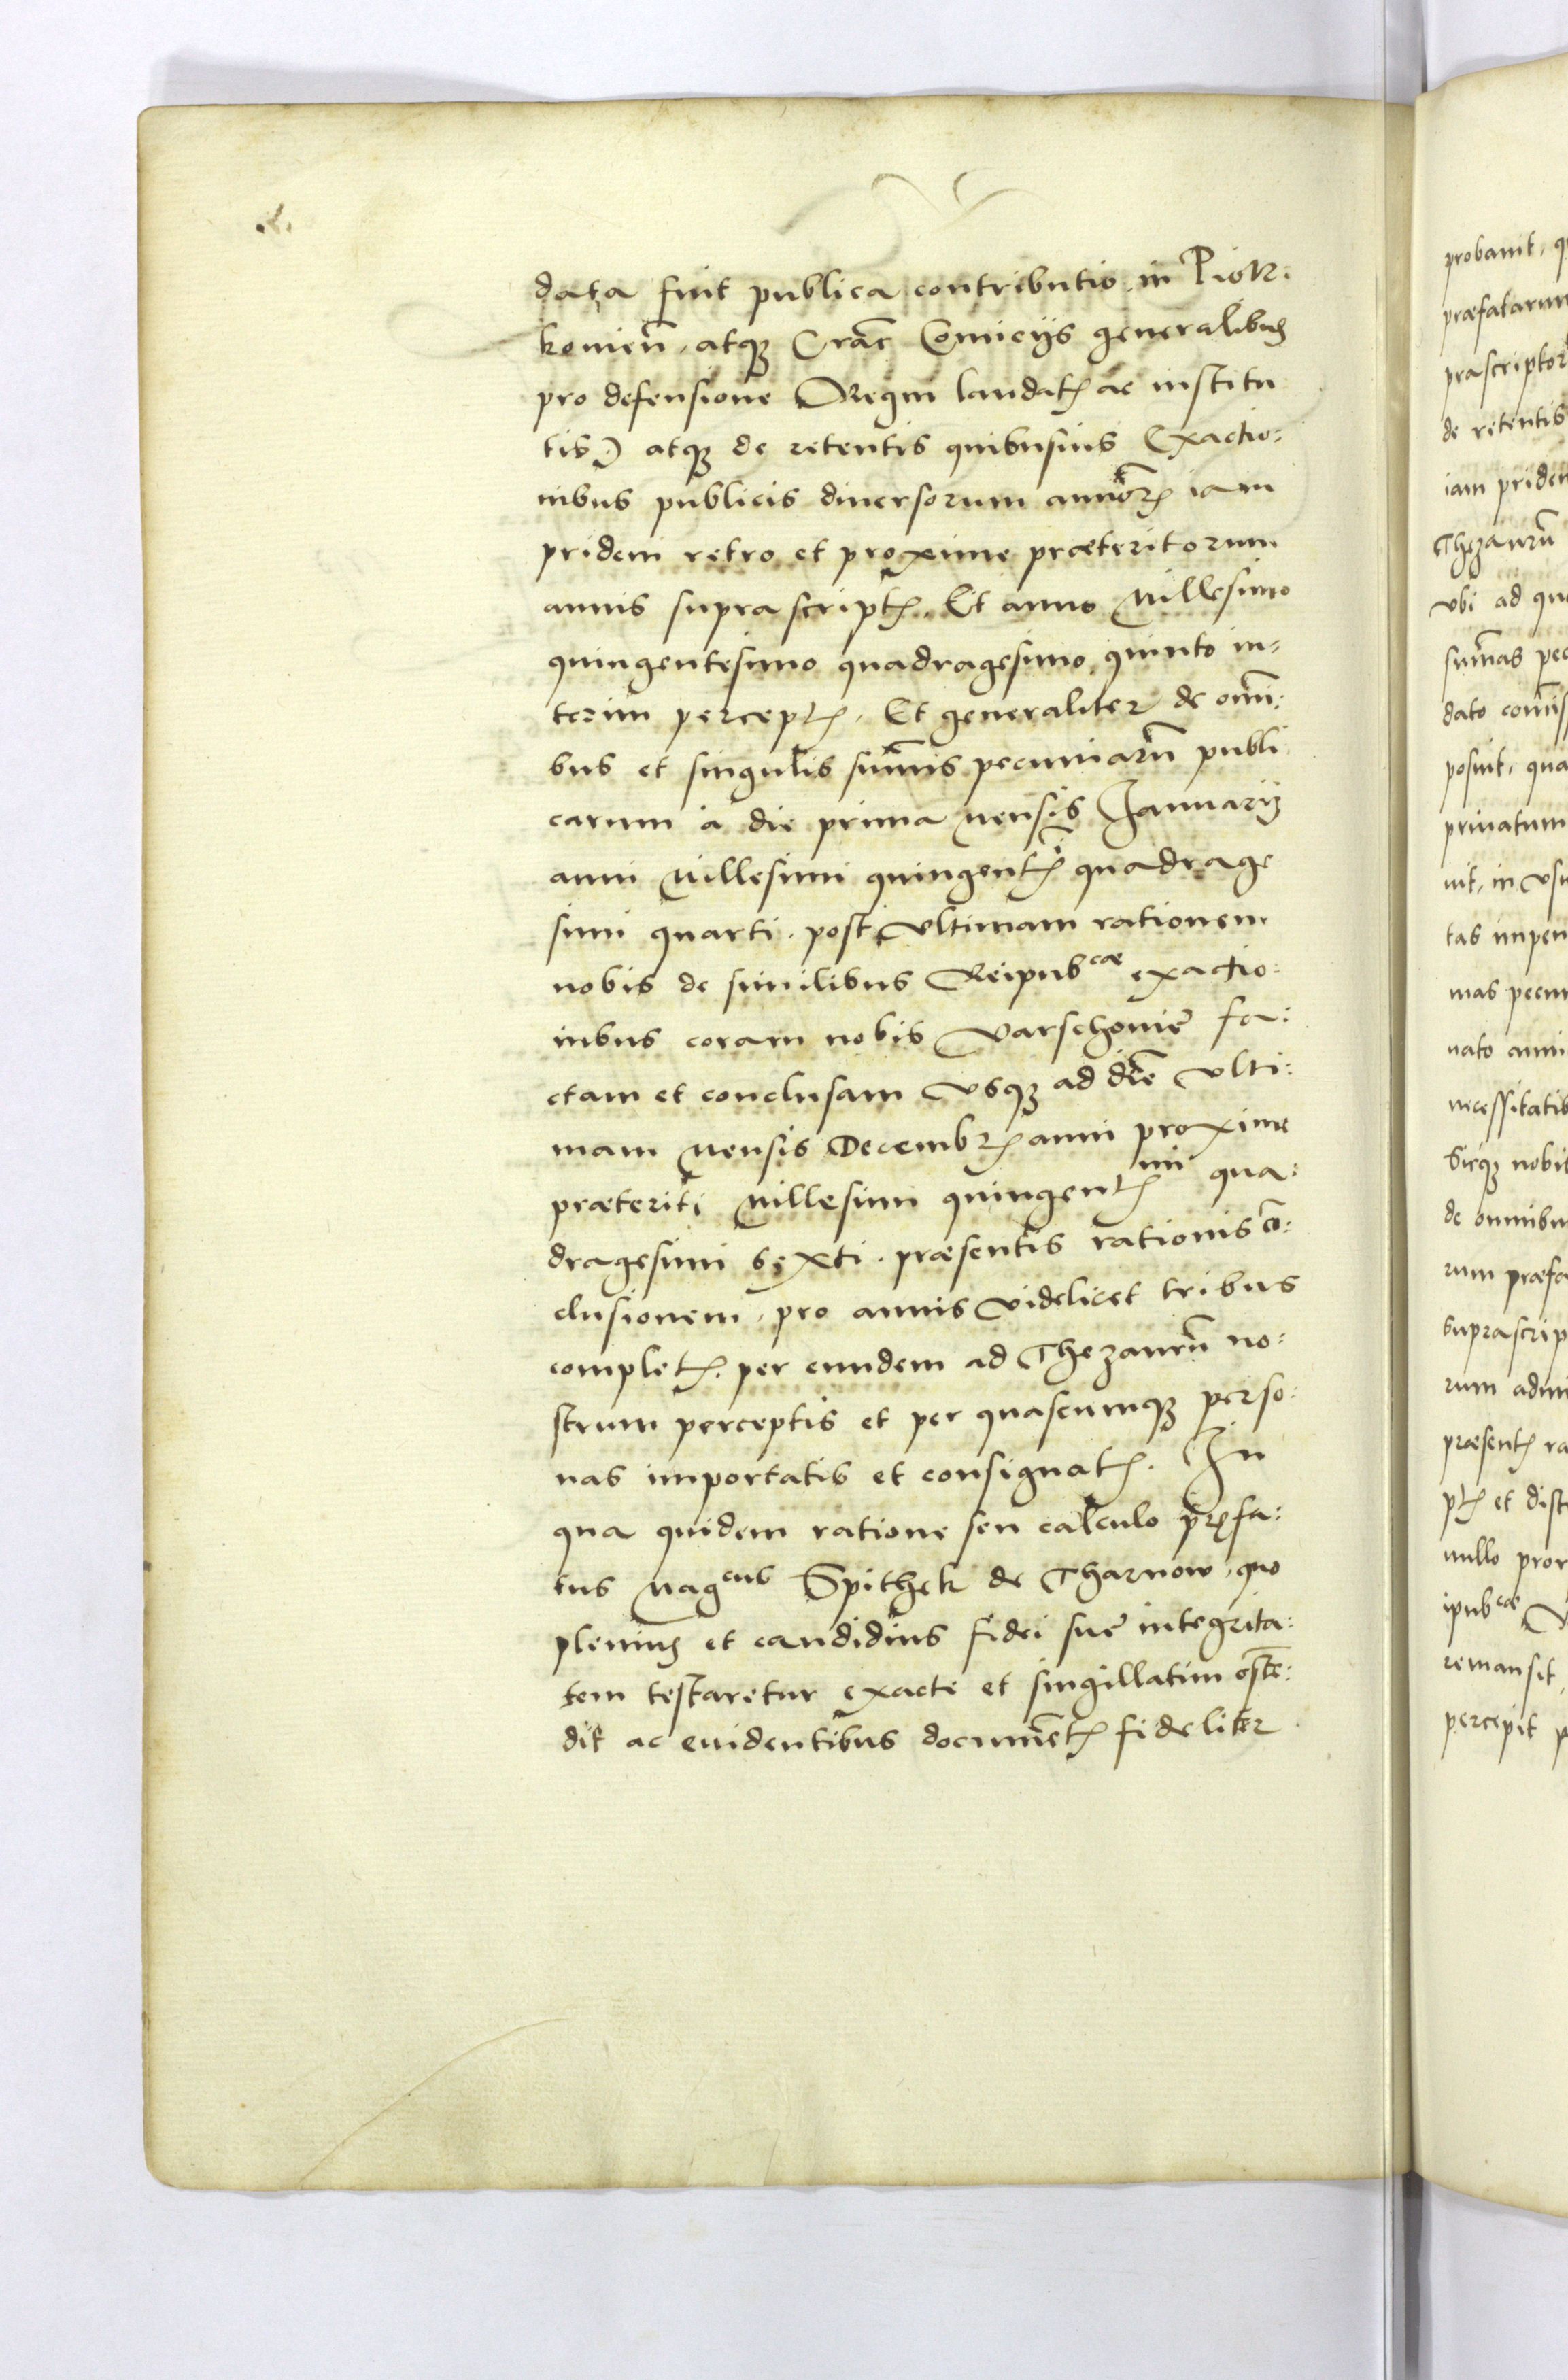 data fuit publica contributio in Piotr:
kouien̄, atqꝫ Crac̄ Comicijs generalibus
pro defensione Regni laudatꝭ ac institu
tis) atqꝫ de retentis quibusuis Exactio:
nibus publicis diuersorum annōrꝭ iam
pridem retro et proxime præteritorum
annis suprascriptꝭ. Et anno Millesimo
quingentesimo quadragesimo quinto in:
terim perceptꝭ. Et generaliter de omī:
bus et singulis sum̄is pecuniarū publi
carum à die prima Mensis Januarij
anni Millesimi quingentꝭmi quadrage
simi quarti. post Vltimam rationem
nobis de similibus Reipubcae exactio:
nibus coram nobis Varschouie fa:
ctam et conclusam Vsqꝫ ad diē Vlti:
mam Mensis Decembrꝭ anni proxime
præteriti Millesimi quingentꝭmi qua:
dragesimi Sexti. præsentis rationis cō:
clusionem, pro annis Videlicet tribus
completꝭ, per eundem ad Thezaurū no:
strum perceptis et per quascumqꝫ perso:
nas importatis et consignatꝭ. In
qua quidem ratione seu calculo præfa:
tus Magcus Spithek de Tharnow, quo
plenius et candidius fidei sue integrita:
tem testaretur exacte et singillatim ostē:
dit ac euidentibus documētꝭ fideliter
probauit, q
præfatarum
præscriptor
de retentis
iam priden
Thezaurū
Vbi ad qu
sum̄as pec
dato com̄is
posuit, qua
priuatum
uit, in Vsu
tas impen
mas pecun
nato anni
necessitatib
Sicqꝫ nobis
de omnibu
rum præfa
suprascrip
rum admi
præsentꝭ ra
ptꝭ et dist
nullo pror
ipubcae
remansit,
percepit p